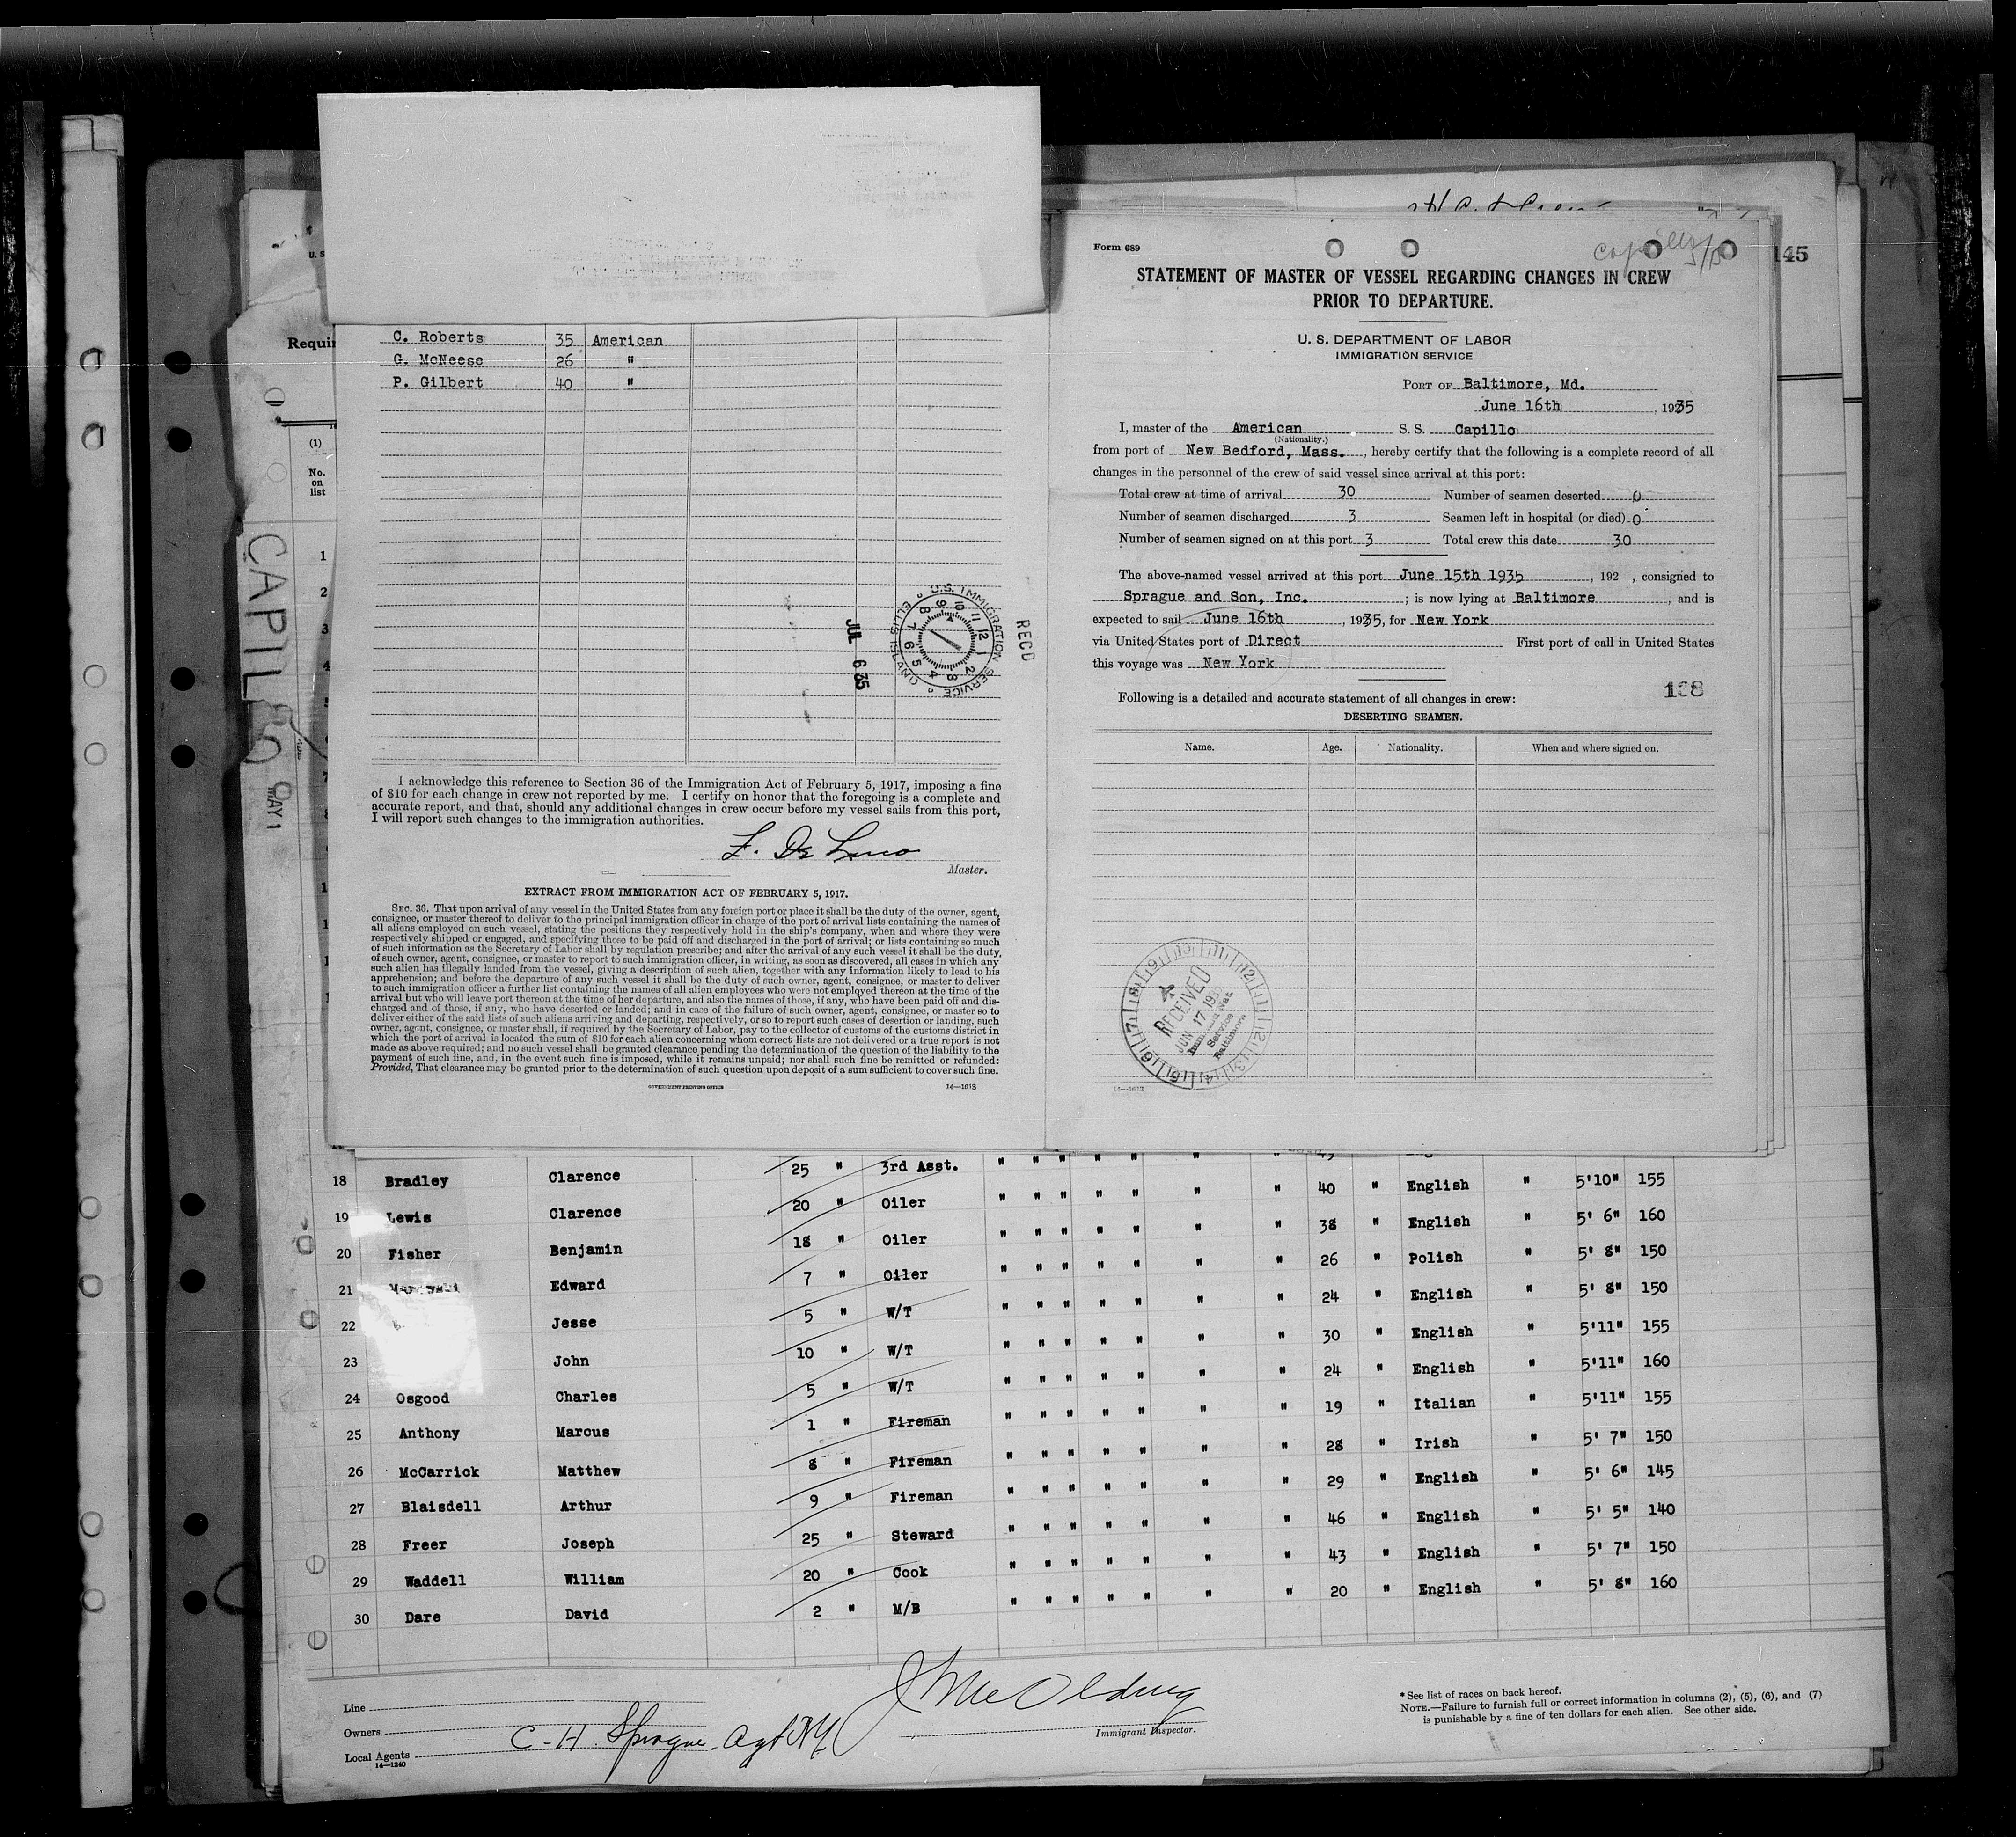 C. Roberts 35 American
G. McNeese 26 "
P. Gilbert 40 "
RECD
U.S. IMMIGRATION SERVICE ELLIS ISLAND
JUL 6 35
I acknowledge this reference to Section 36 of the Immigration Act of February 5, 1917, imposing a fine
of $10 for each change in crew not reported by me. I certify on honor that the foregoing is a complete and
accurate report, and that, should any additional changes in crew occur before my vessel sails from this port,
I will report such changes to the immigration authorities.
Master.
EXTRACT FROM IMMIGRATION ACT OF FEBRUARY 5, 1917.
SEC. 36. That upon arrival of any vessel in the United States from any foreign port or place it shall be the duty of the owner, agent,
consignee, or master thereof to deliver to the principal immigration officer in charge of the port of arrival lists containing the names of
all aliens employed on such vessel, stating the positions they respectively hold in the ship's company, when and where they were
respectively shipped or engaged, and specifying those to be paid off and discharged in the port of arrival; or lists containing so much
of such information as the Secretary of Labor shall by regulation prescribe; and after the arrival of any such vessel it shall be the duty
of such owner, agent, consignee, or master to report to such immigration officer, in writing, as soon as discovered, all cases in which any
such alien has illegally landed from the vessel, giving a description of such alien, together with any information likely to lead to his
apprehension; and before the departure of any such vessel it shall be the duty of such owner, agent, consignee, or master to deliver
to such immigration officer a further list containing the names of all alien employees who were not employed thereon at the time of the
arrival but who will leave port thereon at the time of her departure, and also the names of those, if any, who have been paid off and dis-
charged and of those, if any, who have deserted or landed; and in case of the failure of such owner, agent, consignee, or master so to
deliver either of the said lists of such aliens arriving and departing, respectively, or so to report such cases of desertion or landing, such
owner, agent, consignee, or master shall, if required by the Secretary of Labor, pay to the collector of customs of the customs district in
which the port of arrival is located the sum of $10 for each alien concerning whom correct lists are not delivered or a true report is not
made as above required; and no such vessel shall be granted clearance pending the determination of the question of the liability to the
payment of such fine, and, in the event such fine is imposed, while it remains unpaid; nor shall such fine be remitted or refunded:
Provided, That clearance may be granted prior to the determination of such question upon deposit of a sum sufficient to cover such fine.
GOVERNMENT PRINTING OFFICE 14—1613
Form 689
145
STATEMENT OF MASTER OF VESSEL REGARDING CHANGES IN CREW
PRIOR TO DEPARTURE.
U. S. DEPARTMENT OF LABOR
IMMIGRATION SERVICE
PORT OF Baltimore, Md.
June 16th, 1935
I, master of the American S. S. Capillo
(Nationality.)
from port of New Bedford, Mass., hereby certify that the following is a complete record of all
changes in the personnel of the crew of said vessel since arrival at this port:
Total crew at time of arrival 30 Number of seamen deserted 0
Number of seamen discharged 3 Seamen left in hospital (or died) 0
Number of seamen signed on at this port 3 Total crew this date 30
The above-named vessel arrived at this port June 15th 1935, 192 , consigned to
Sprague and Son, Inc.; is now lying at Baltimore, and is
expected to sail June 16th, 1935, for New York
via United States port of Direct First port of call in United States
this voyage was New York
Following is a detailed and accurate statement of all changes in crew:
DESERTING SEAMEN.
Name. Age. Nationality. When and where signed on.
RECEIVED
JUN 17
Service
Baltimore
14—1613
Requir
(1)
No.
on
list
CAPILLO
MAY 1
1
2
3
4
5
18 Bradley Clarence 25 " 3rd Asst. " " " " " " "
19 Lewis Clarence 20 " Oiler " " " " " " " 40 " English " 5'10" 155
20 Fisher Benjamin 18 " Oiler " " " " " " " 38 " English " 5' 6" 160
21 Edward 7 " Oiler " " " " " " " 26 " Polish " 5' 8" 150
22 Jesse 5 " W/T " " " " " " " 24 " English " 5' 8" 150
23 John 10 " W/T " " " " " " " 30 " English " 5'11" 155
24 Osgood Charles 5 " W/T " " " " " " " 24 " English " 5'11" 160
25 Anthony Marcus 1 " Fireman " " " " " " " 19 " Italian " 5'11" 155
26 McCarrick Matthew 8 " Fireman " " " " " " " 28 " Irish " 5' 7" 150
27 Blaisdell Arthur 9 " Fireman " " " " " " " 29 " English " 5' 6" 145
28 Freer Joseph 25 " Steward " " " " " " " 46 " English " 5' 5" 140
29 Waddell William 20 " Cook " " " " " " " 43 " English " 5' 7" 150
30 Dare David 2 " M/B " " " " " " " 20 " English " 5' 8" 160
Line
Owners
Local Agents C-H. Sprague. Agt NY
14—1240
Immigrant Inspector.
* See list of races on back hereof.
NOTE.—Failure to furnish full or correct information in columns (2), (5), (6), and (7)
is punishable by a fine of ten dollars for each alien. See other side.